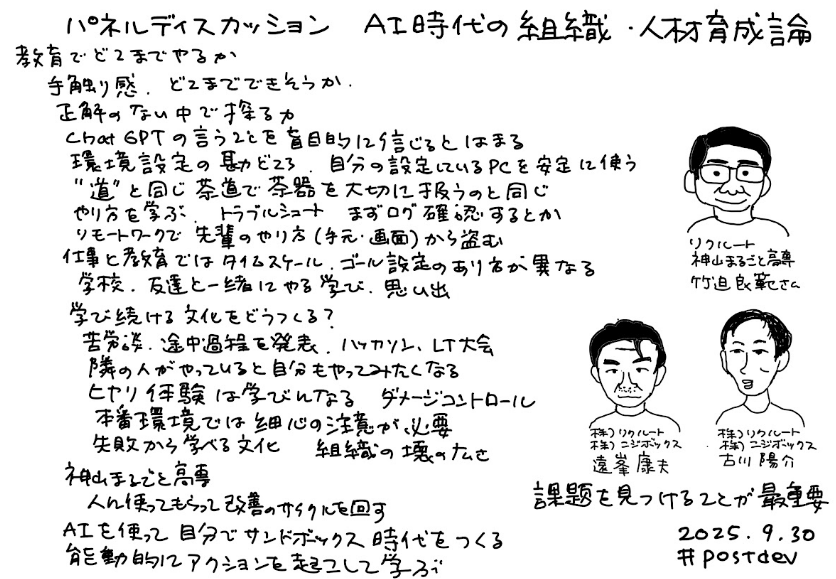 パネルディスカッション AI時代の組織・人材育成論
教育でどこまでやるか
手触り感.どこまでできそうか.
正解のない中で探る力
Chat GPTの言うことを盲目的に信じるとはまる
環境設定の勘どころ.自分の設定しているPCを安定に使う
"道"と同じ 茶道で茶器を大切に扱うのと同じ
やり方を学ぶ.トラブルシュート まずログ確認するとか
リモートワークで 先輩のやり方(手元・画面)から盗む
仕事と教育ではタイムスケール.ゴール設定のあり方が異なる
学校.友達と一緒にやる学び.思い出
学び続ける文化をどうつくる?
苦労談.途中過程を発表.ハッカソン、LT大会
隣の人がやっていると自分もやってみたくなる
ヒヤリ体験は学びになる ダメージコントロール
本番環境では細心の注意が必要
失敗から学べる文化 組織の壊の広さ
神山まるごと高専
人に使ってもらって改善のサイクルを回す
AIを使って自分でサンドボックス時代をつくる
能動的にアクションを起こして学ぶ
リクルート
神山まるごと高専
竹迫良範さん
株)リクルート
株)ニジボックス
遠峯康夫
株)リクルート
株)ニジボックス
古川陽介
課題を見つけることが最重要
2025.9.30
#postdev